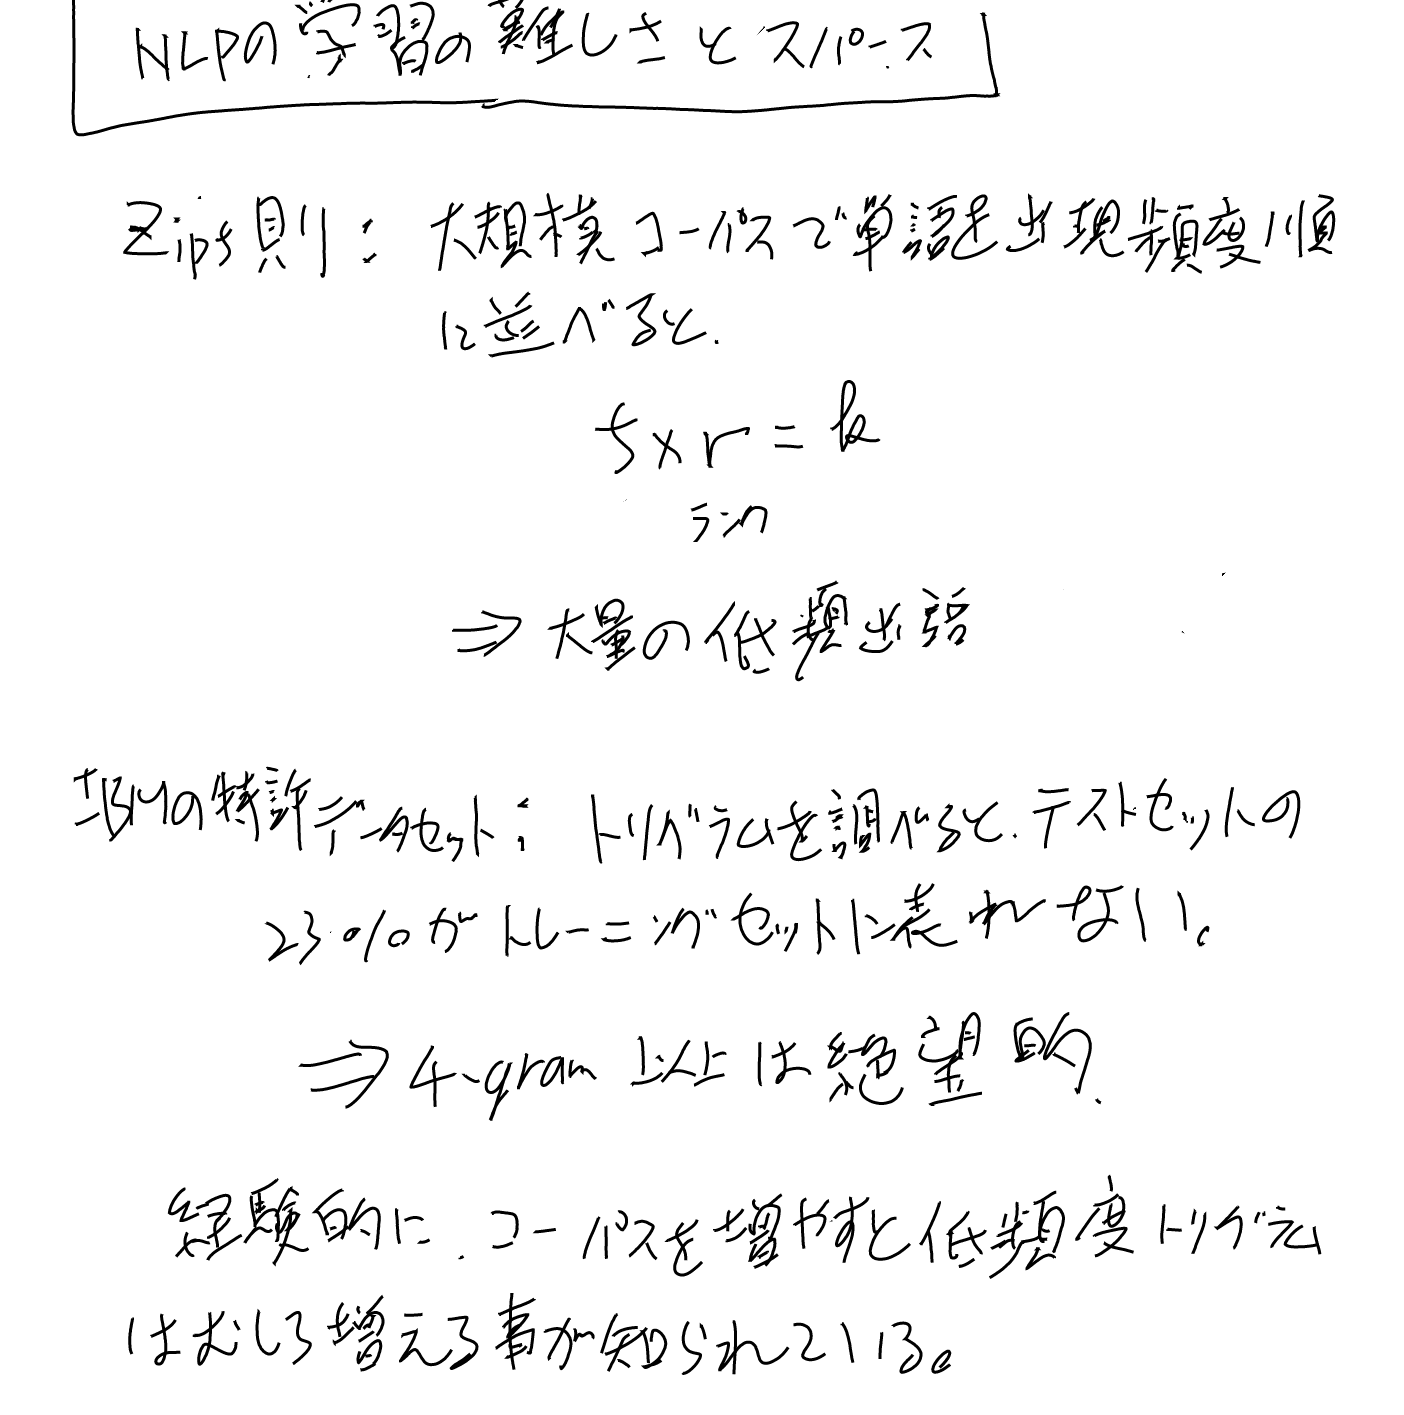 NLPの学習の難しさとスパース
Zipf則: 大規模コーパスで単語を出現頻度順
に並べると.
f×r=k
ランク
⇒大量の低頻出語
IBMの特許データセット: トリグラムを調べると.テストセットの
23%がトレーニングセットに表れない。
⇒4-gram以上は絶望的.
経験的に.コーパスを増やすと低頻度トリグラム
はむしろ増える事が知られている。